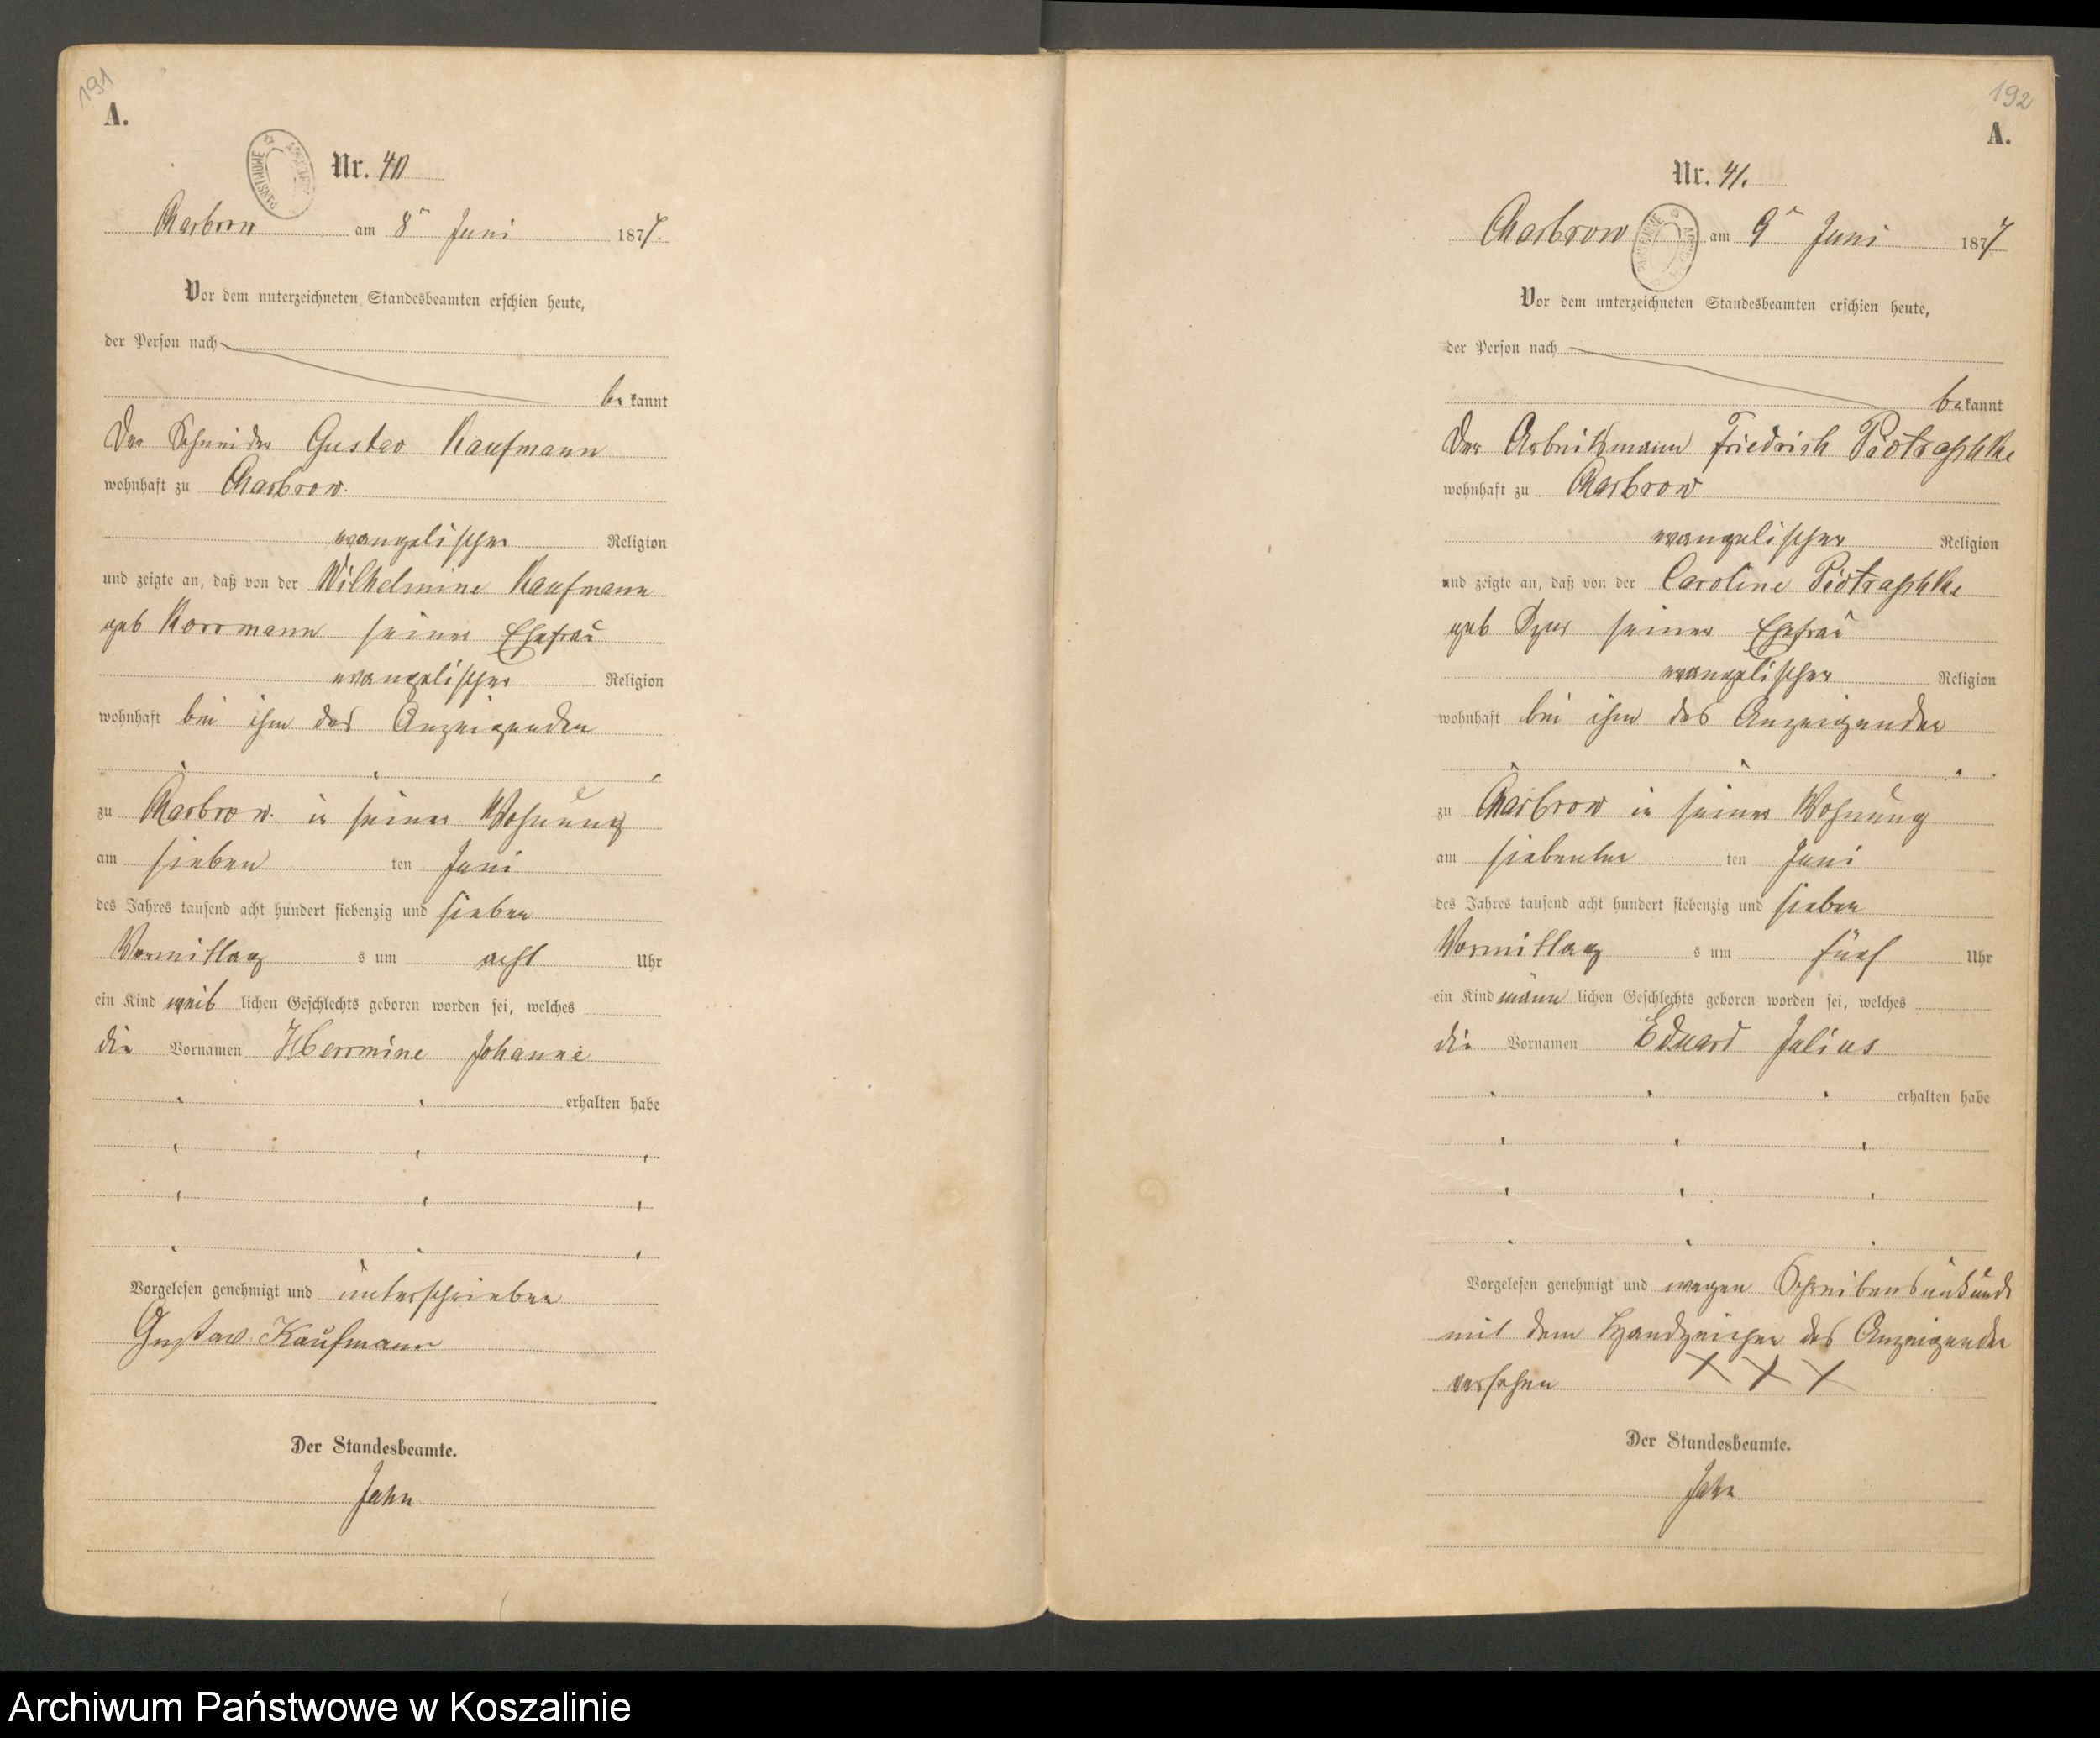 191
A.
Nr. 40
PAŃSTWOWE
Charbrow am 8n Juni 1877.
Vor dem unterzeichneten Standesbeamten erschien heute,
der Person nach
be kannt
Der Schneider Gustav Kaufmann
wohnhaft zu Charbrow.
evangelischer Religion
und zeigte an, daß von der Wilhelmine Kaufmann
geb Korrmann seiner Ehefrau
evangelischer Religion
wohnhaft bei ihm des Anzeigenden
zu Charbrow. in seiner Wohnung
am sieben ten Juni
des Jahres tausend acht hundert siebenzig und sieben
Vormittag s um acht Uhr
ein Kind weib lichen Geschlechts geboren worden sei, welches
die Vornamen Herrmine Johanne
erhalten habe
Vorgelesen genehmigt und unterschrieben
Gustav Kaufmann
Der Standesbeamte.
Jahn
192
A.
Nr. 41.
Charbrow am 9n Juni 1877
Vor dem unterzeichneten Standesbeamten erschien heute,
der Person nach
be kannt
Der Arbeitsmann Friedrich Piotraschke
wohnhaft zu Charbrow
evangelischer Religion
und zeigte an, daß von der Caroline Piotraschke
geb seiner Ehefrau
evangelischer Religion
wohnhaft bei ihm des Anzeigenden
zu Charbrow in seiner Wohnung
am siebenten ten Juni
des Jahres tausend acht hundert siebenzig und sieben
Vormittag s um fünf Uhr
ein Kind männ lichen Geschlechts geboren worden sei, welches
die Vornamen Eduard Julius
erhalten habe
Vorgelesen genehmigt und wegen Schreibensunkunde
mit dem Handzeichen des Anzeigenden
versehen XXX
Der Standesbeamte.
Jahn
Archiwum Państwowe w Koszalinie